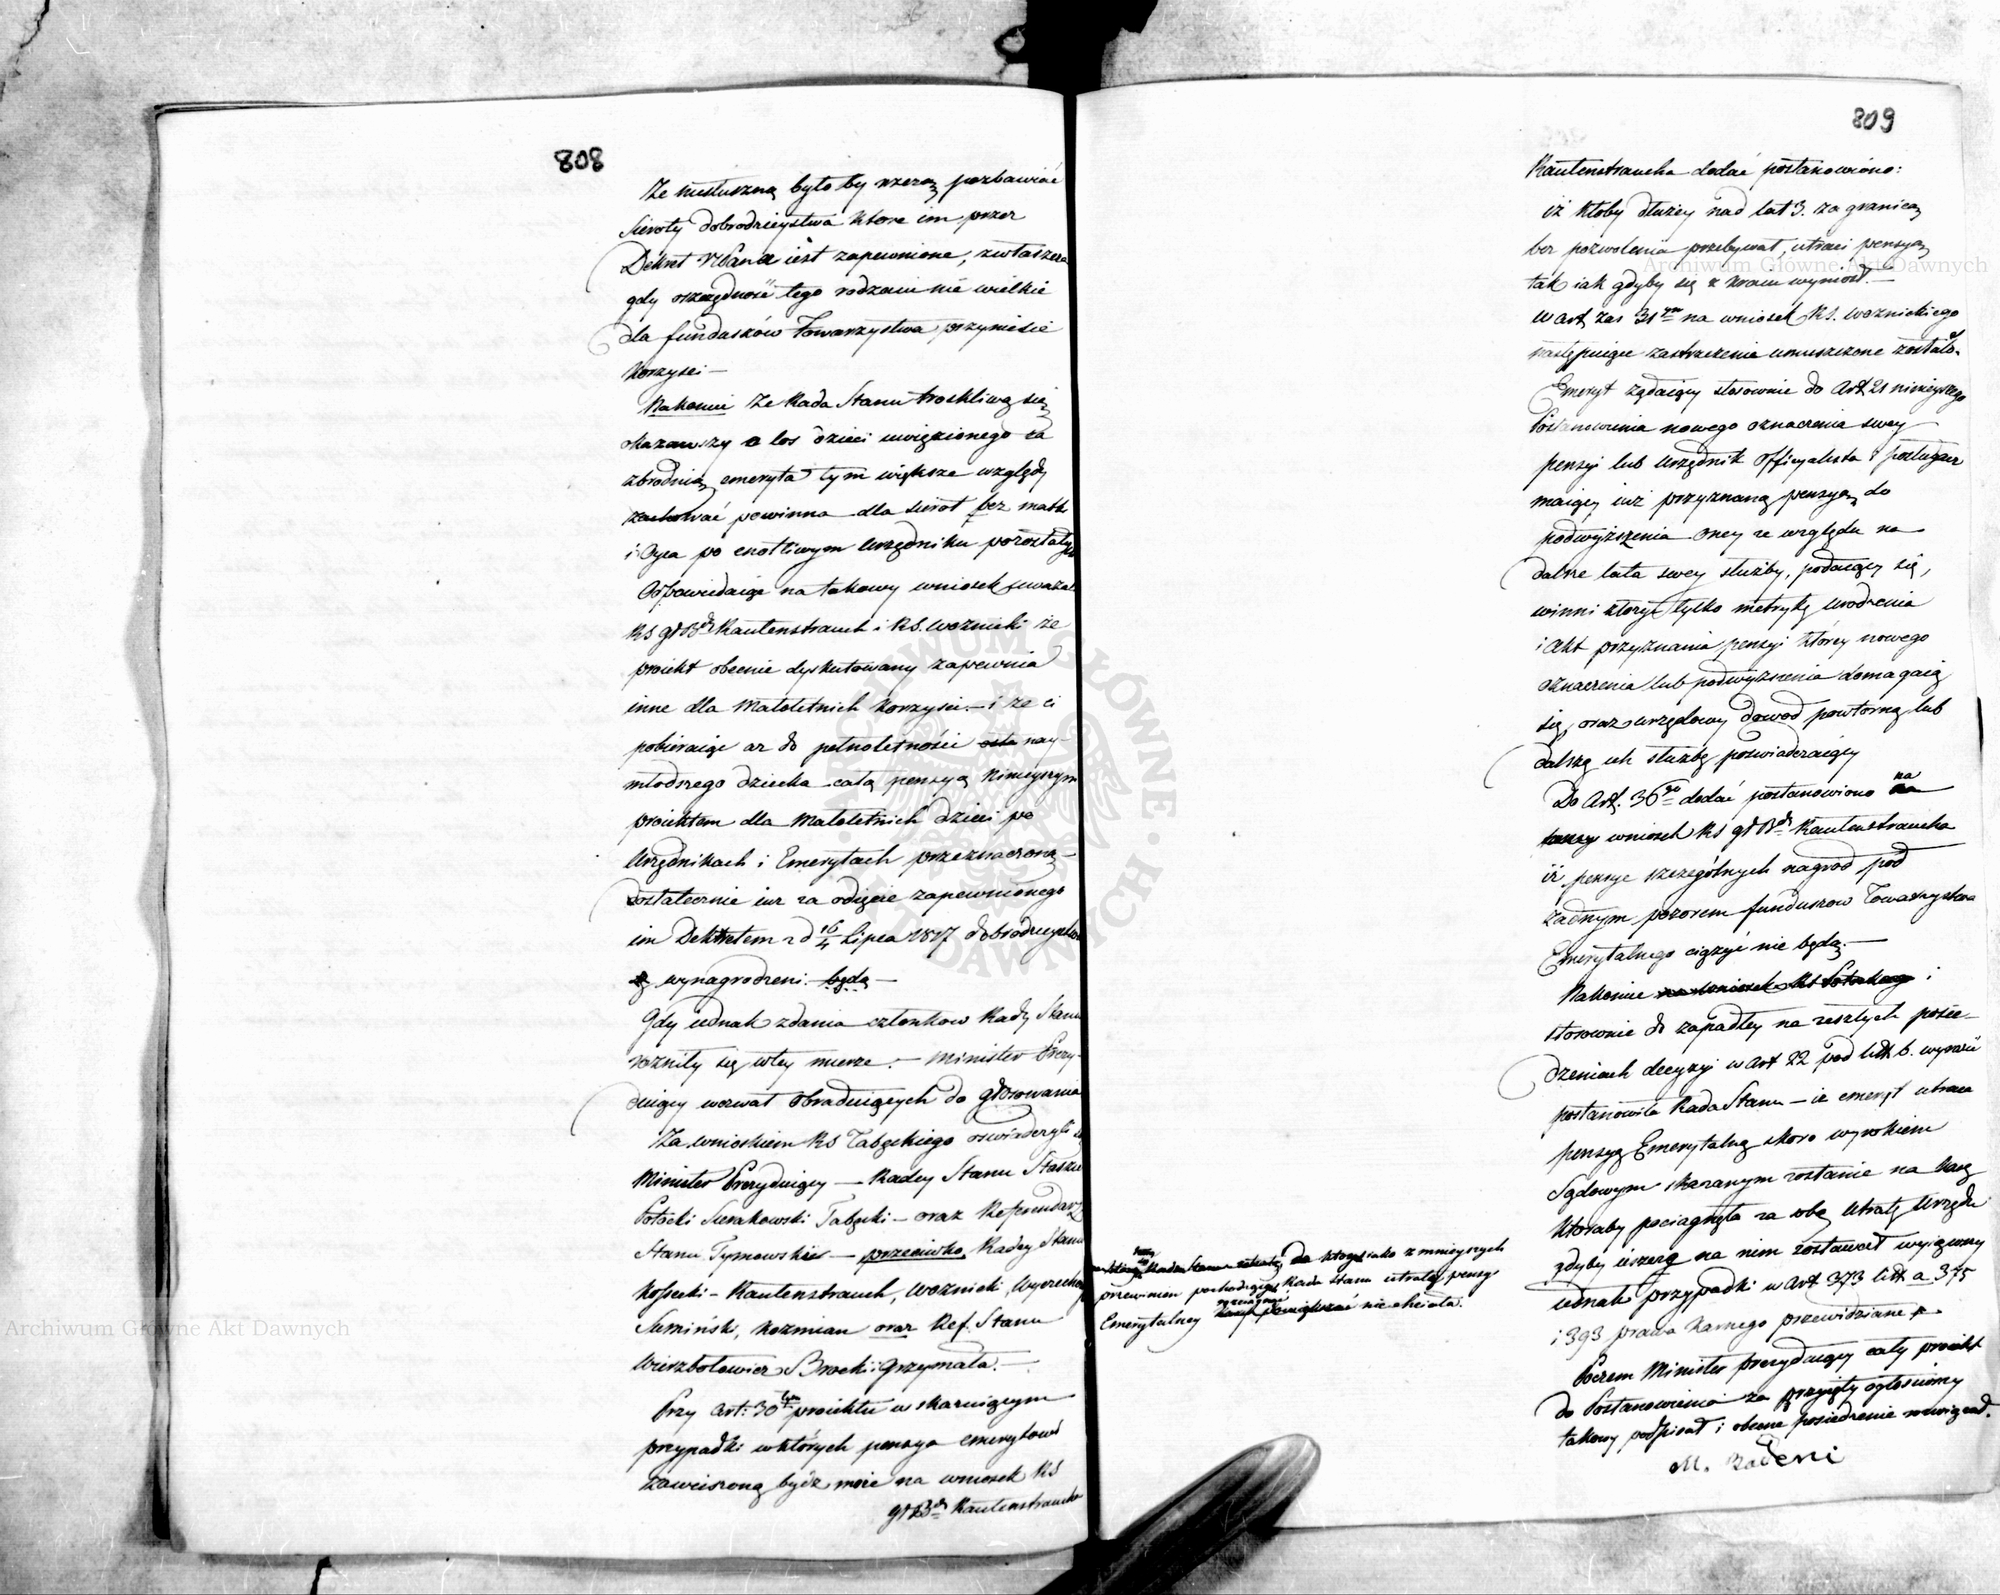 808
Że niesłuszną było by rzeczą pozbawiać
sieroty dobrodzieystwa które im przez
Dekret Pana iest zapewnione, zwłaszcza
gdy oszczędność tego rodzaiu nie wielkie
dla funduszów Towarzystwa przyniesie
korzyści —
Nakoniec że Rada Stanu troskliwą się
okazawszy o los dzieci uwięzionego za
zbrodnią emeryta tym większe względy
zachować powinna dla sierot bez matki
i Oyca po cnotliwym urzędniku pozostałych
Odpowiadaiąc na takowy wniosek uważali
RS gł Bdy Rautenstrauch i RS. Woźnicki że
proiekt obecnie dyskutowany zapewnia
inne dla Małoletnich korzyści. — i że ci
pobieraiąc aż do pełnoletności nay-
młodszego dziecka całą pensyą ninieyszym
proiektem dla Małoletnich dzieci po
Urzędnikach i Emerytach przeznaczoną —
dostatecznie iuż za odięcie zapewnionego
im Dekretem z d 16/4 Lipca 1817 dobrodzieystwa
wynagrodzeni będą —
Gdy iednak zdania członkow Rady Stanu
rożniły się w tey mierze. — Minister Prezy-
duiący wezwał Obraduiących do głosowania
Za wnioskiem RS Tabęckiego oświadczyli się
Minister Prezyduiący — Radcy Stanu Staszic
Potocki Sierakowski Tabęcki — oraz Referendarz
Stanu Tymowski — przeciwko Radcy Stanu
Kossecki — Rautenstrauch, Woźnicki, Wyczechowski
Sumiński, Koźmian oraz Ref. Stanu
Wierzbołowicz Brocki i Grzymała. —
Przy Art: 30tym proiektu wskazuiącym
przypadki w których pensya emerytow
zawieszoną bydź może na wniosek RS
gł Bdy Rautenstraucha
809
Rautenstraucha dodać postanowiono:
iż ktoby dłużey nad lat 3. za granicą
bez pozwolenia przebywał, utraci pensyą
tak iak gdyby się z kraiu wyniosł. —
W art zaś 31ym na wniosek RS. Woźnickiego
następuiące zastrzeżenie umieszczone zostało.
Emeryt żądaiący stosownie do Art 21 ninieyszego
Postanowienia nowego oznaczenia swey
pensyi lub Urzędnik Officyalista i posługacz
maiący iuż przyznaną pensyą do
podwyższenia oney ze względu na
dalsze lata swey służby, podaiący się,
winni złożyć tylko metrykę urodzenia
i Akt przyznania pensyi którey nowego
oznaczenia lub podwyższenia domagaią
się, oraz urzędowy dowod powtorną lub
dalszą ich służbę poświadczaiący
Do Art. 36go dodać postanowiono na
wniosek RS gł Bdy Rautenstraucha
iż pensye szczególnych nagrod pod
żadnym pozorem funduszow Towarzystwa
Emerytalnego ciążyć nie będą. —
Nakoniec na wniosek RS Potockiego i
stosownie do zapadłey na zeszłych posie-
dzeniach decyzyi w art 22 pod litt b. wyrazić
postanowiła Rada Stanu — iż emeryt utraca
pensyą Emerytalną skoro wyrokiem
Sądowym skazanym zostanie na karę
któraby pociągnęła za sobą utratę Urzędu
gdyby ieszcze na nim zostawał wyiąwszy
iednak przypadki w art 373 litt a 375
i 393 prawa karnego przewidziane
do których iako z mnieyszych
przewinien pochodzących Rada Stanu utraty pensyi
Emerytalney rozciągnąć nie chciała.
Poczem Minister prezyduiący cały proiekt
do Postanowienia za przyięty ogłosiwszy
takowy podpisał i obecne posiedzenie rozwiązał.
M. Badeni
Archiwum Główne Akt Dawnych
Archiwum Główne Akt Dawnych